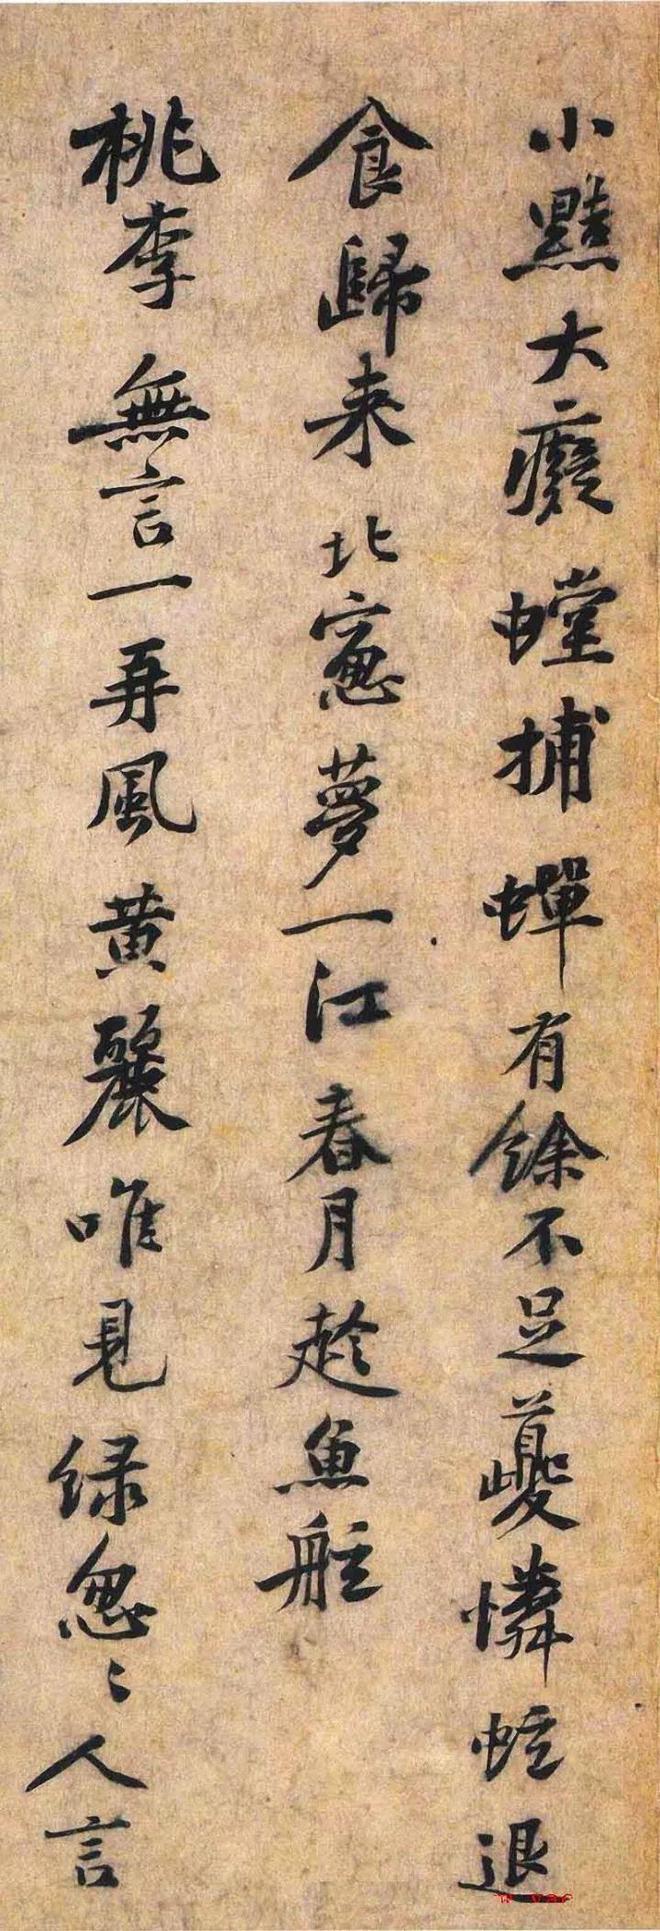 小黠大癡螳捕蟬有餘不足夔憐蚿退
食歸来北窻夢一江春月趁魚船
桃李無言一再風黄麗唯見緑怱〻人言